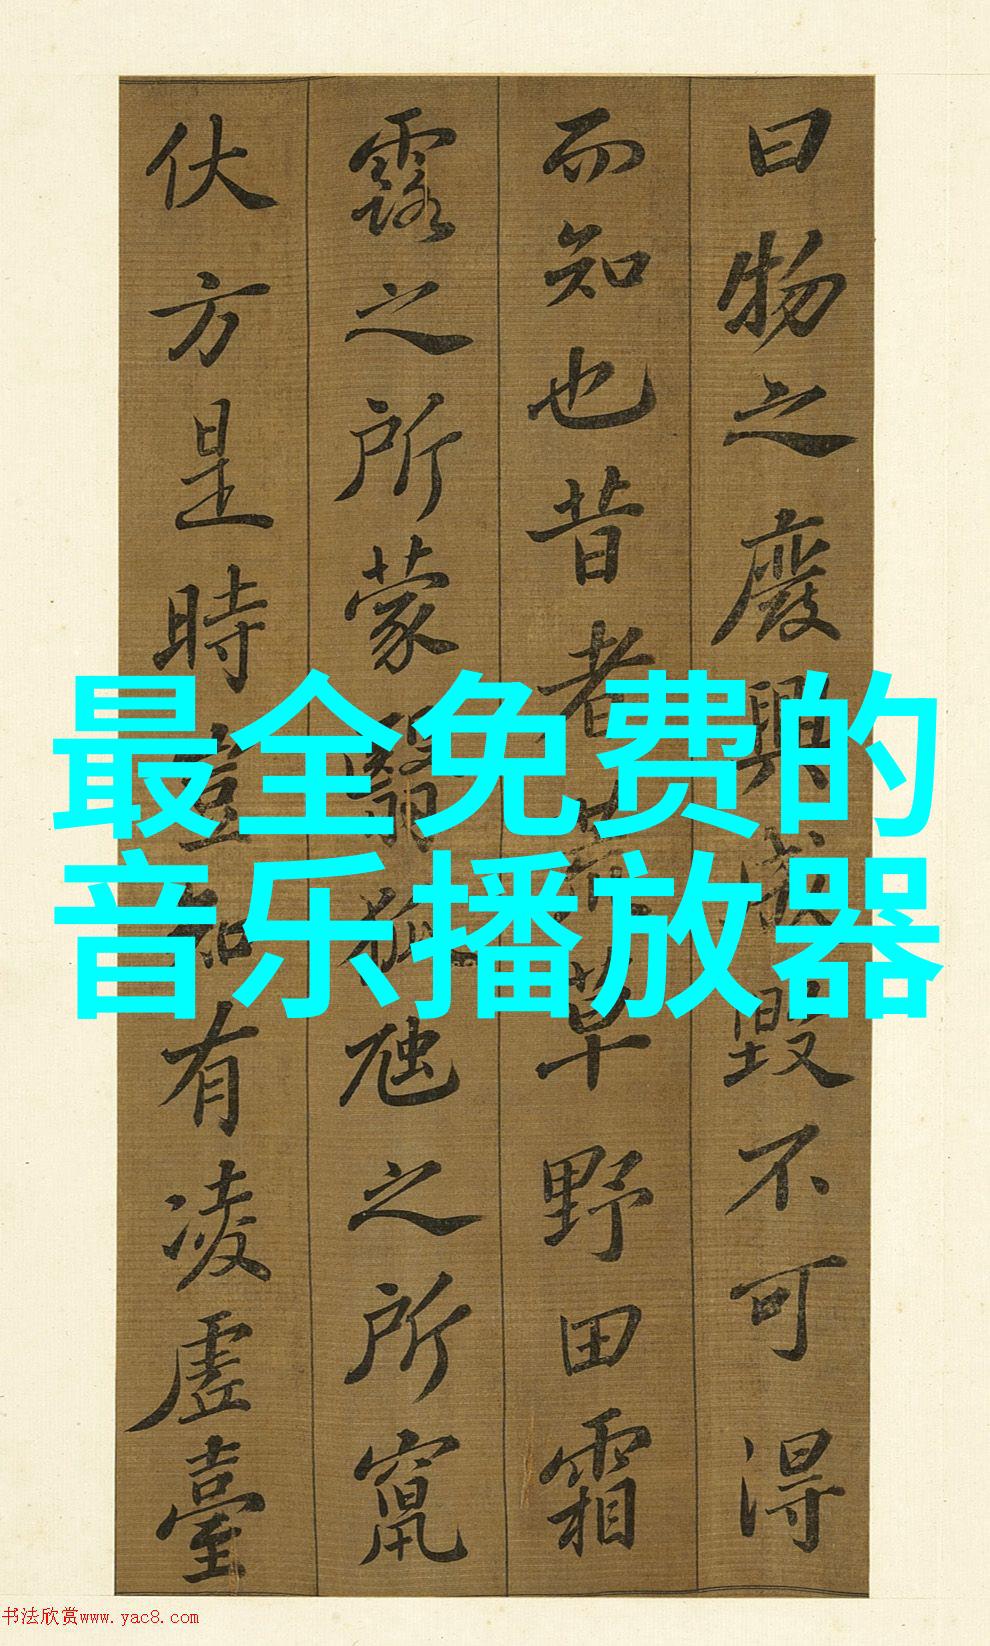 曰物之廢興成毀不可得
而知也昔者荒草野田霜
露之所蒙翳狐虺之所竄
伏方是時豈知有凌虛臺
最全免费的
音乐播放器
书法欣赏www.yac8.com